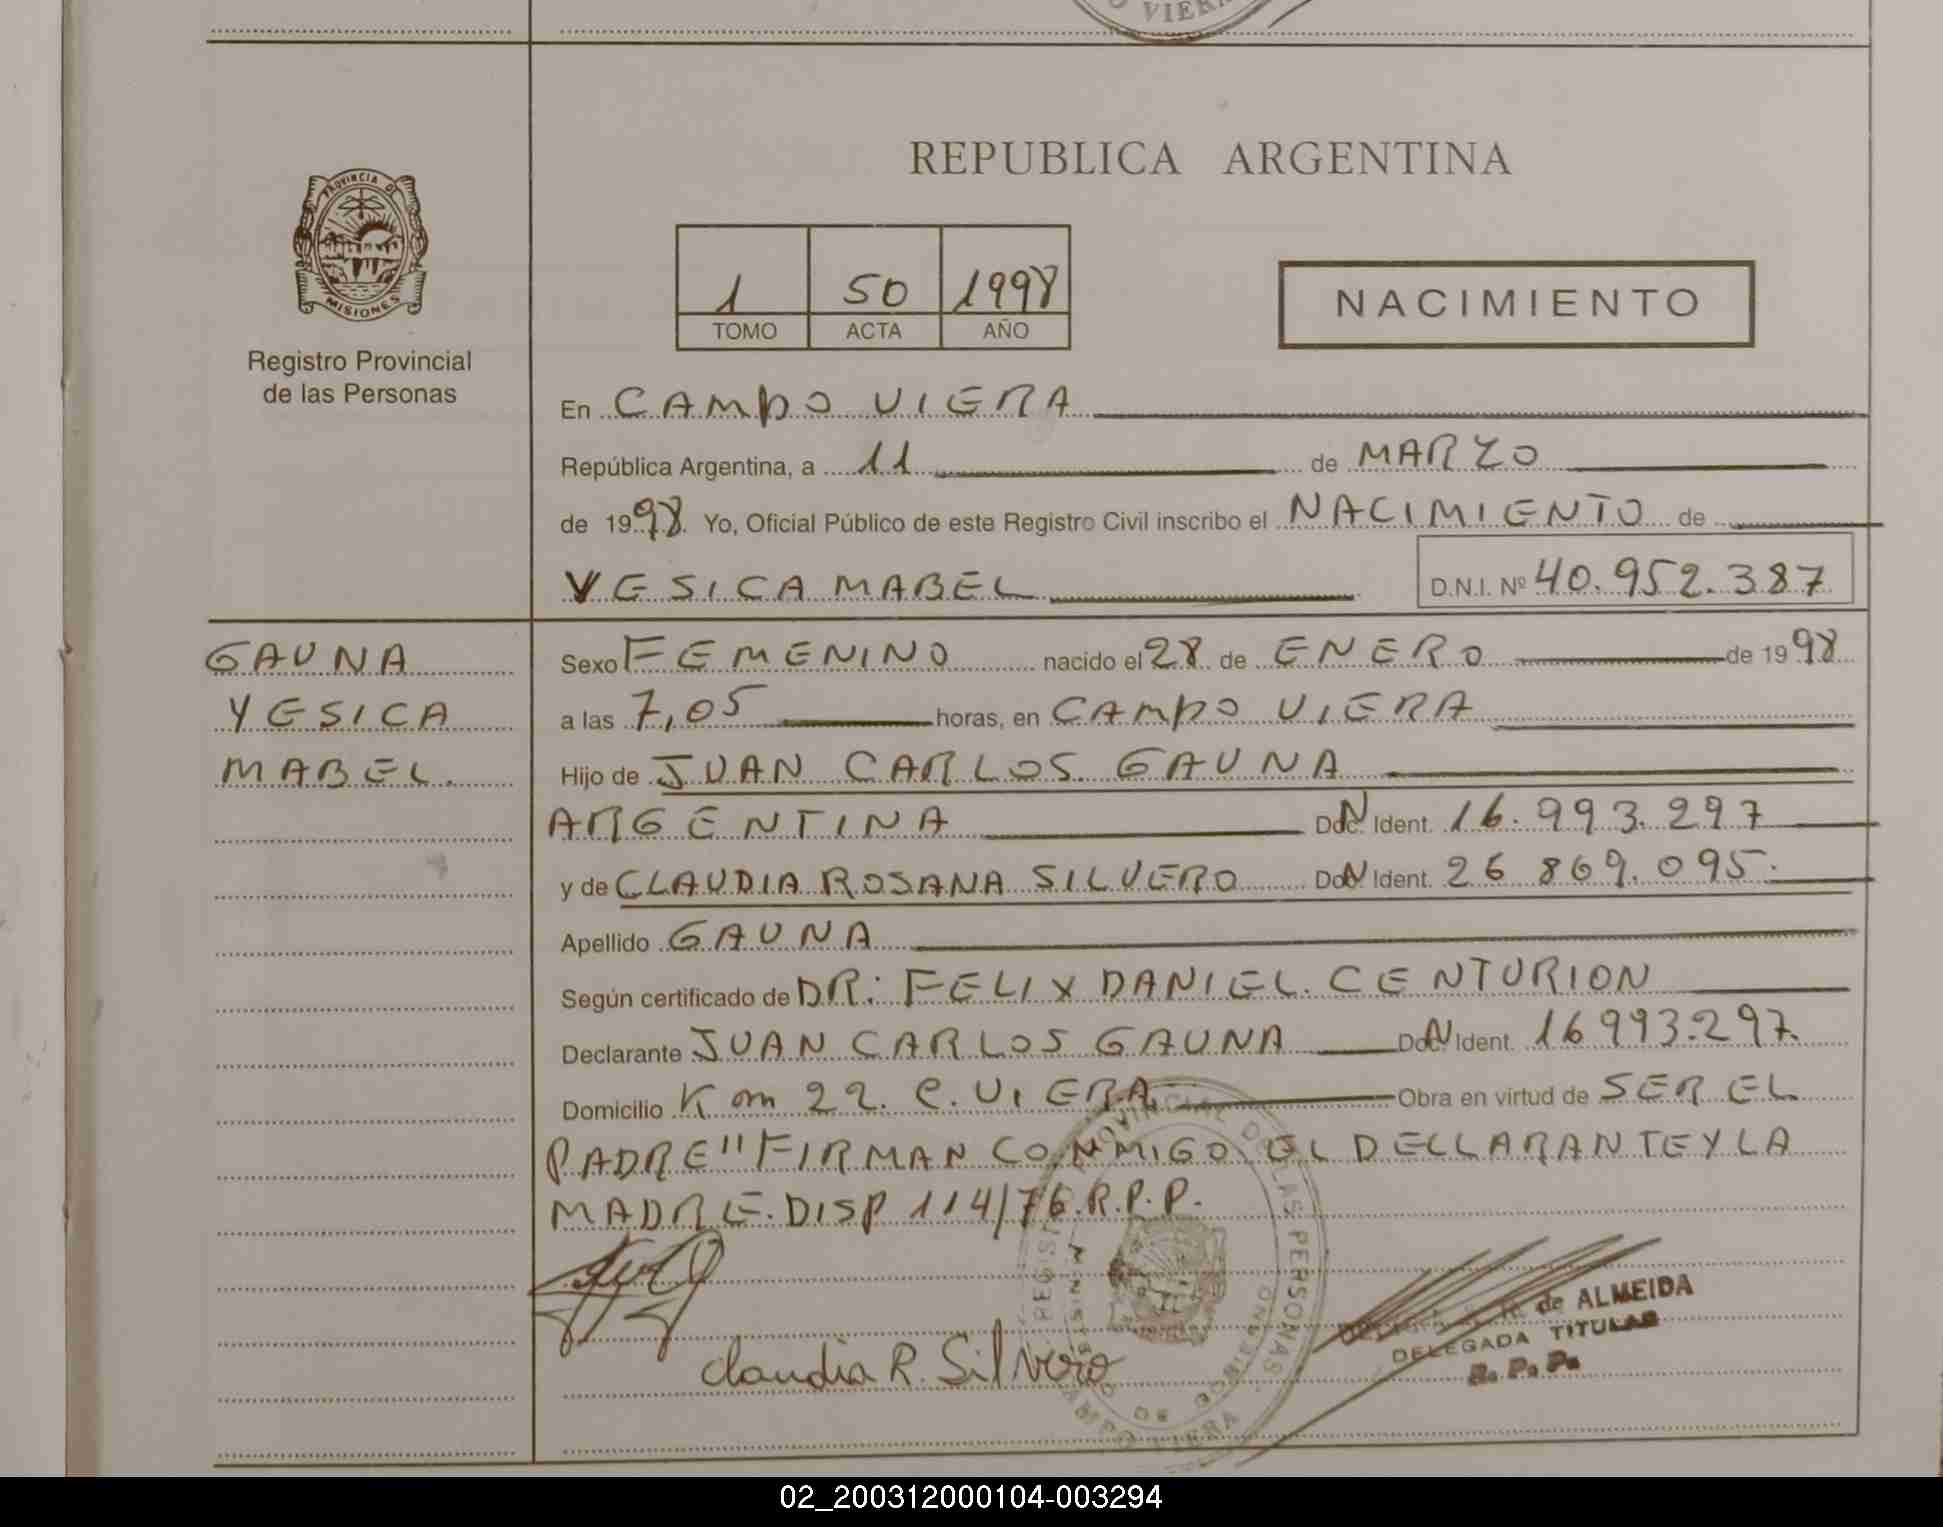 O VIERA
REPUBLICA ARGENTINA
PROVINCIA DE
MISIONES
Registro Provincial
de las Personas
1 50 1998
TOMO ACTA AÑO
NACIMIENTO
En CAMPO VIERA
República Argentina, a 11 de MARZO
de 1998. Yo, Oficial Público de este Registro Civil inscribo el NACIMIENTO de
YESICA MABEL D.N.I. Nº 40.952.387
GAUNA
YESICA
MABEL.
Sexo FEMENINO nacido el 28 de ENERO de 1998
a las 7,05 horas, en CAMPO VIERA
Hijo de JUAN CARLOS GAUNA
ARGENTINA Doc. N Ident. 16.993.297
y de CLAUDIA ROSANA SILVERO Doc. N Ident. 26 869.095.
Apellido GAUNA
Según certificado de DR: FELIX DANIEL CENTURION
Declarante JUAN CARLOS GAUNA Doc. N Ident. 16993.297.
Domicilio Km 22. C. VIERA Obra en virtud de SER EL
PADRE" FIRMAN CONMIGO EL DELLARANTE Y LA
MADRE. DISP 114/76.R.P.P.
Claudia R. Silvero
PROVINCIAL DE LAS PERSONAS
de ALMEIDA
DELEGADA TITULAR
R. P. P.
02_200312000104-003294